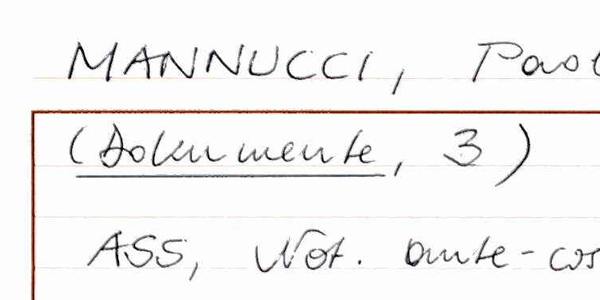 MANNUCCI, Paol
(Dokumente, 3)
ASS, Not. ante-cos